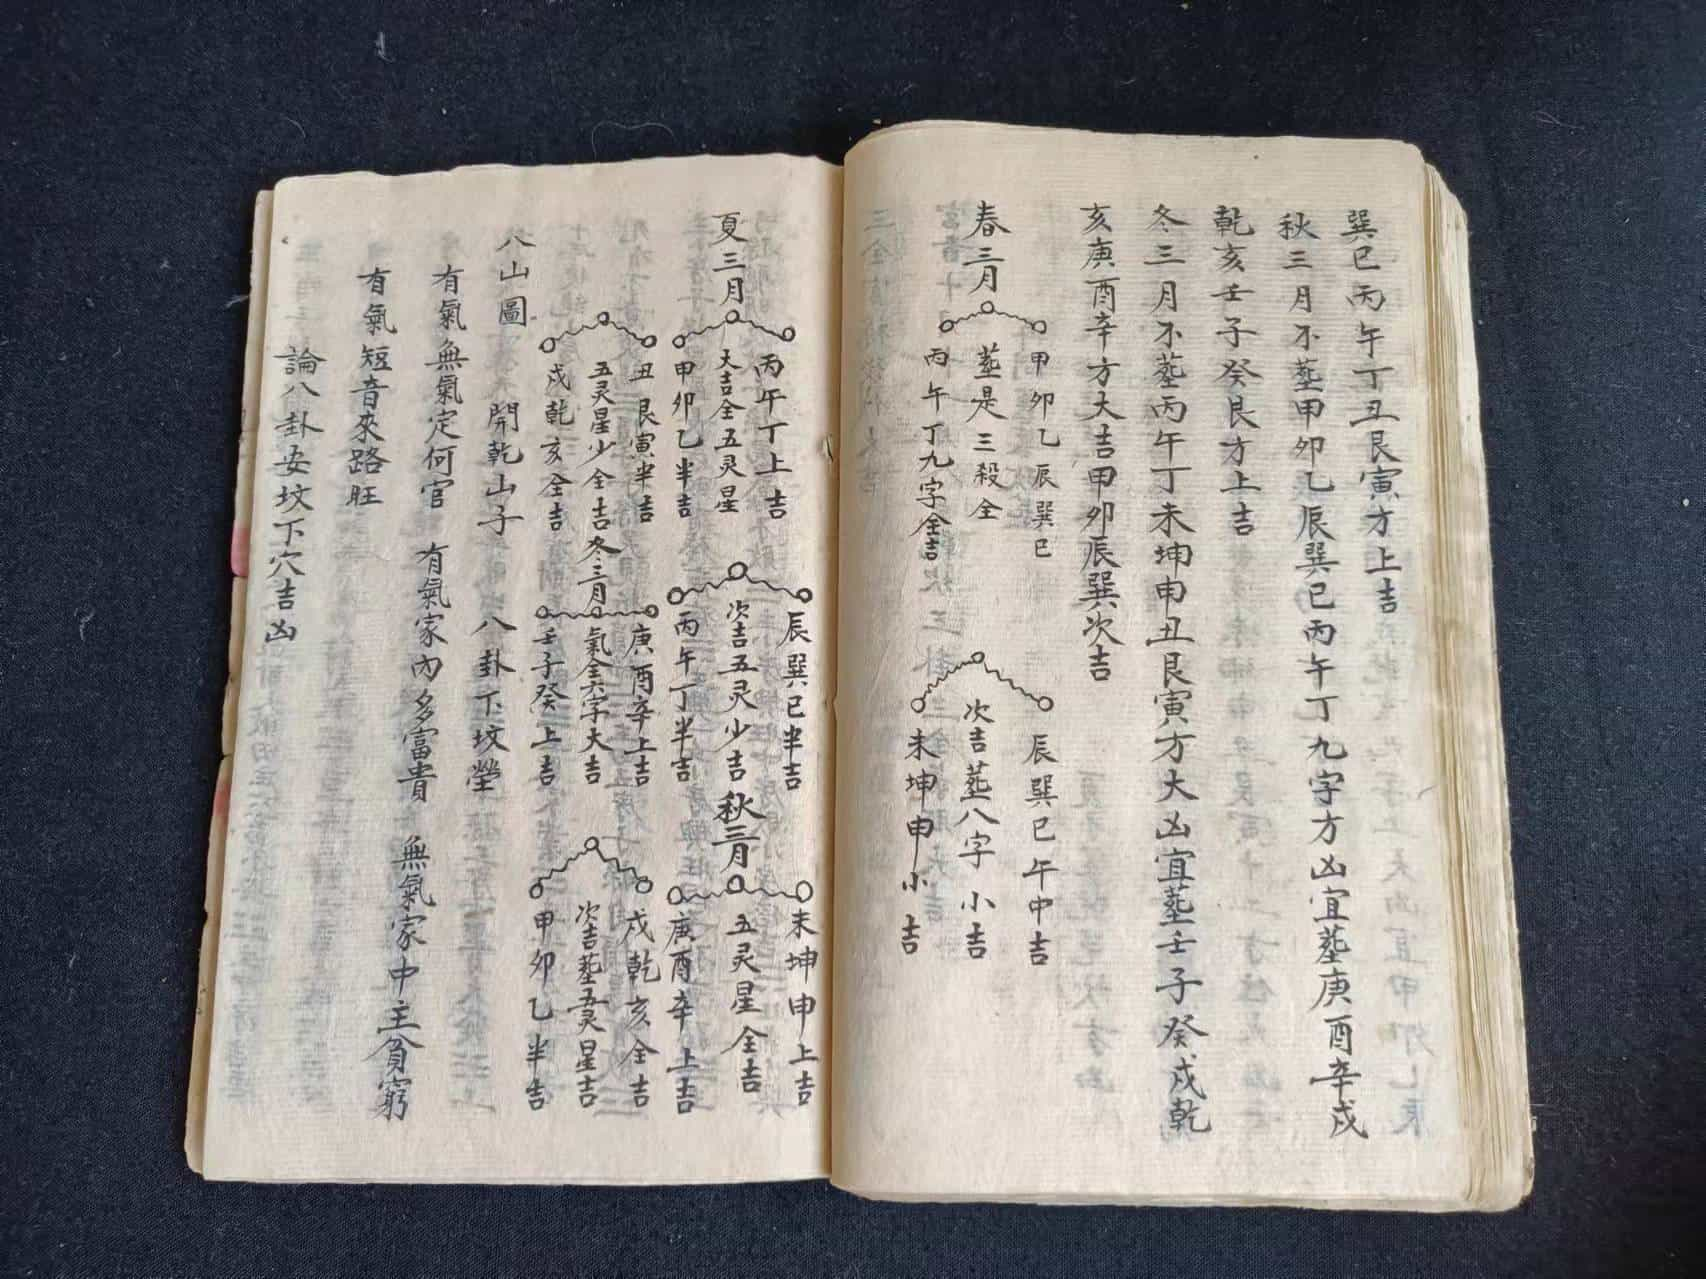 巽巳丙午丁丑艮寅方上吉
秋三月不塟甲卯乙辰巽巳丙午丁九字方凶宜塟庚酉辛戌
乾亥壬子癸艮方上吉
冬三月不塟丙午丁未坤申丑艮寅方大凶宜塟壬子癸戌乾
亥庚酉辛方大吉甲卯辰巽次吉
春三月
甲卯乙辰巽巳
塟是三殺全
丙午丁九字全吉
辰巽巳午中吉
次吉塟八字小吉
未坤申小吉
夏三月
丙午丁上吉
大吉全五灵星
甲卯乙半吉
辰巽巳半吉
次吉五灵少吉
丙午丁半吉
秋三月
未坤申上吉
五灵星全吉
庚酉辛上吉
丑艮寅半吉
五灵星少全吉
戌乾亥全吉
冬三月
庚酉辛上吉
氣全六字大吉
壬子癸上吉
戌乾亥全吉
次吉塟五灵星吉
甲卯乙半吉
八山圖 開乾山子 八卦下坟塋
有氣無氣定何官 有氣家內多富貴 無氣家中主貧窮
有氣短音來路旺
論八卦安坟下穴吉凶